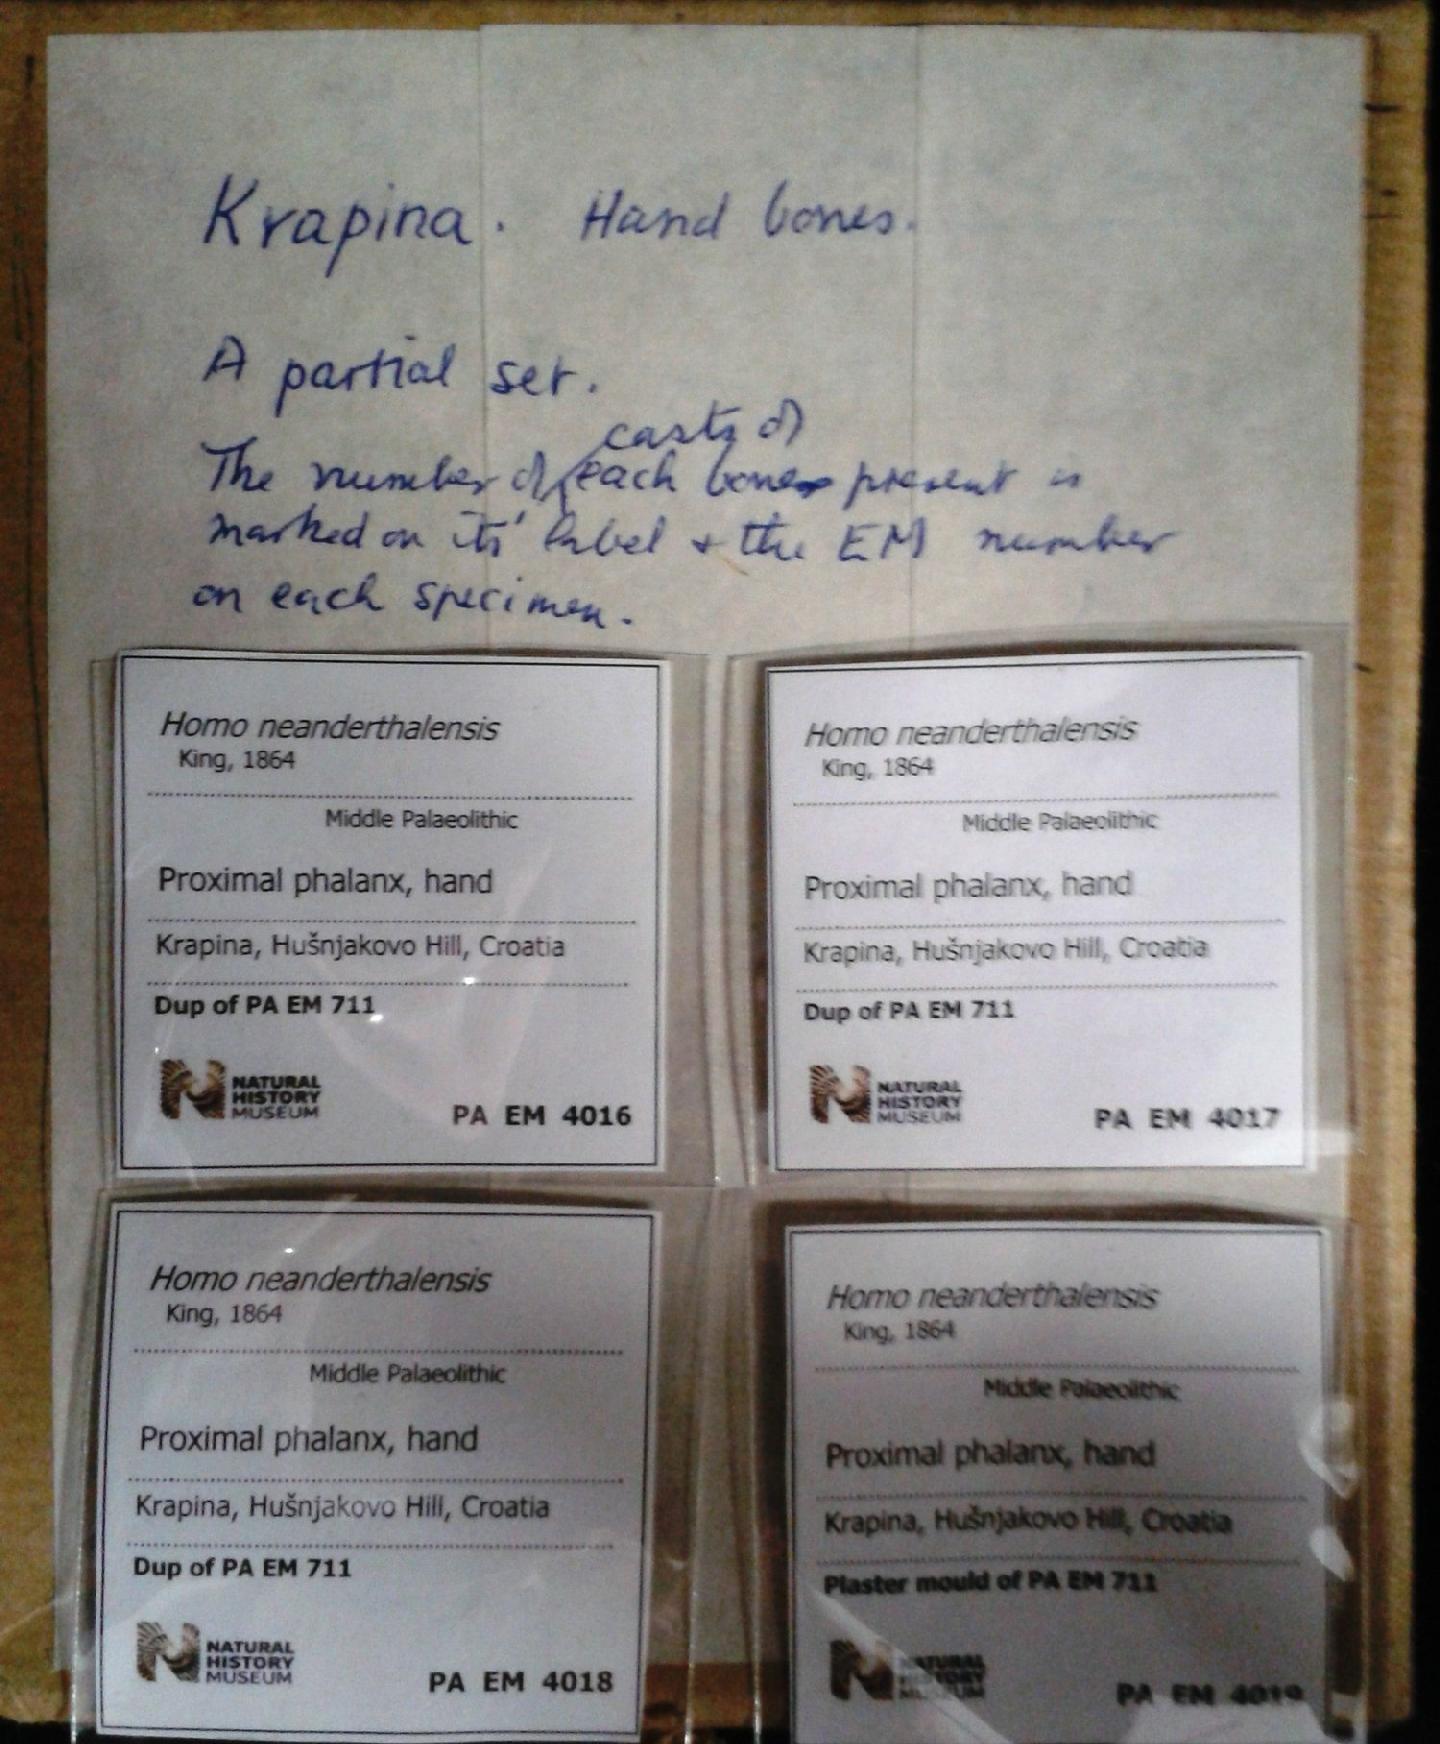 Krapina. Hand bones.
A partial set.
casts of
The number of each bone present is
marked on its' label & the EM number
on each specimen.
Homo neanderthalensis
King, 1864
Middle Palaeolithic
Proximal phalanx, hand
Krapina, Hušnjakovo Hill, Croatia
Dup of PA EM 711
NATURAL
HISTORY
MUSEUM
PA EM 4016
Homo neanderthalensis
King, 1864
Middle Palaeolithic
Proximal phalanx, hand
Krapina, Hušnjakovo Hill, Croatia
Dup of PA EM 711
NATURAL
HISTORY
MUSEUM
PA EM 4017
Homo neanderthalensis
King, 1864
Middle Palaeolithic
Proximal phalanx, hand
Krapina, Hušnjakovo Hill, Croatia
Dup of PA EM 711
NATURAL
HISTORY
MUSEUM
PA EM 4018
Homo neanderthalensis
King, 1864
Middle Palaeolithic
Proximal phalanx, hand
Krapina, Hušnjakovo Hill, Croatia
Plaster mould of PA EM 711
NATURAL
HISTORY
MUSEUM
PA EM 4019